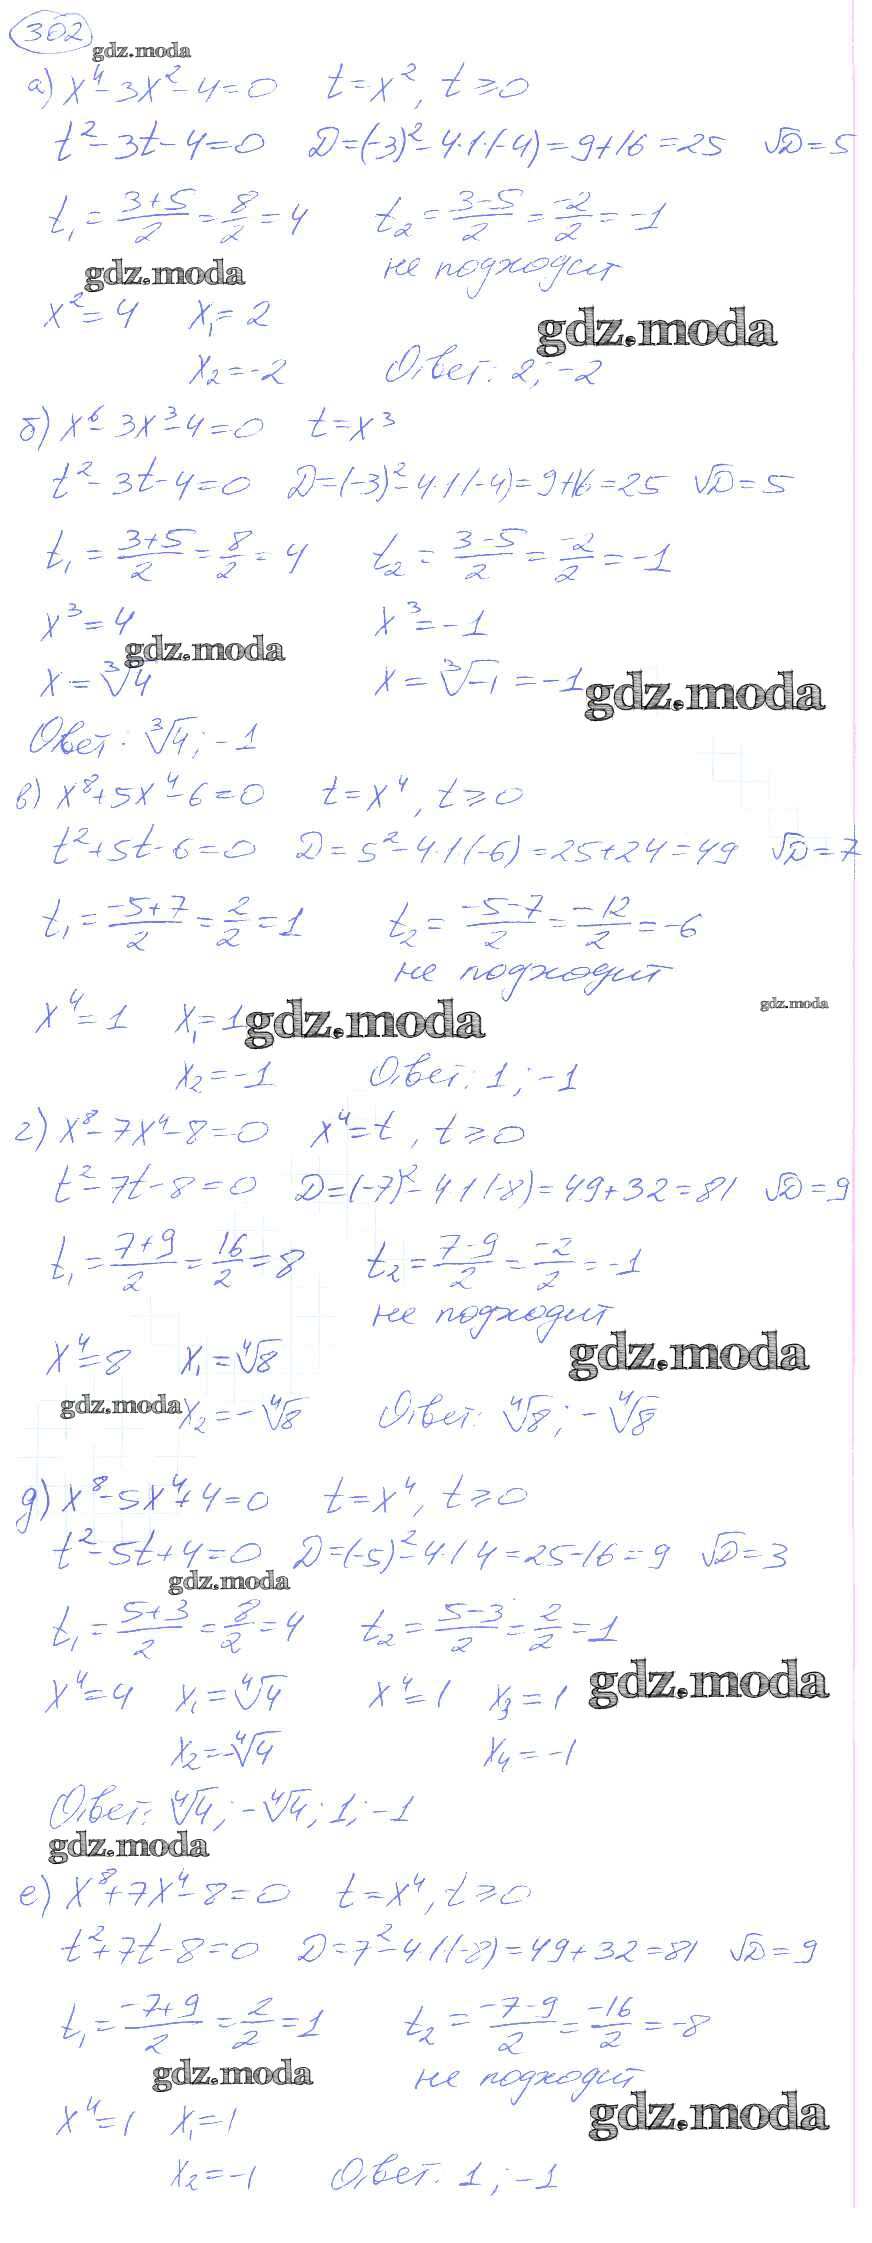 302
gdz.moda
а) x⁴ - 3x² - 4 = 0 t = x², t ≥ 0
t² - 3t - 4 = 0 D = (-3)² - 4·1·(-4) = 9 + 16 = 25 √D = 5
t₁ = (3+5)/2 = 8/2 = 4 t₂ = (3-5)/2 = -2/2 = -1
gdz.moda не подходит
x² = 4 x₁ = 2 gdz.moda
x₂ = -2 Ответ: 2; -2
б) x⁶ - 3x³ - 4 = 0 t = x³
t² - 3t - 4 = 0 D = (-3)² - 4·1·(-4) = 9 + 16 = 25 √D = 5
t₁ = (3+5)/2 = 8/2 = 4 t₂ = (3-5)/2 = -2/2 = -1
x³ = 4 x³ = -1
gdz.moda
x = ∛4 x = ∛-1 = -1 gdz.moda
Ответ: ∛4; -1
в) x⁸ + 5x⁴ - 6 = 0 t = x⁴, t ≥ 0
t² + 5t - 6 = 0 D = 5² - 4·1·(-6) = 25 + 24 = 49 √D = 7
t₁ = (-5+7)/2 = 2/2 = 1 t₂ = (-5-7)/2 = -12/2 = -6
не подходит
x⁴ = 1 x₁ = 1 gdz.moda gdz.moda
x₂ = -1 Ответ: 1; -1
г) x⁸ - 7x⁴ - 8 = 0 x⁴ = t, t ≥ 0
t² - 7t - 8 = 0 D = (-7)² - 4·1·(-8) = 49 + 32 = 81 √D = 9
t₁ = (7+9)/2 = 16/2 = 8 t₂ = (7-9)/2 = -2/2 = -1
не подходит
x⁴ = 8 x₁ = ∜8 gdz.moda
gdz.moda x₂ = -∜8 Ответ: ∜8; -∜8
д) x⁸ - 5x⁴ + 4 = 0 t = x⁴, t ≥ 0
t² - 5t + 4 = 0 D = (-5)² - 4·1·4 = 25 - 16 = 9 √D = 3
gdz.moda
t₁ = (5+3)/2 = 8/2 = 4 t₂ = (5-3)/2 = 2/2 = 1
x⁴ = 4 x₁ = ∜4 x⁴ = 1 x₃ = 1 gdz.moda
x₂ = -∜4 x₄ = -1
Ответ: ∜4; -∜4; 1; -1
gdz.moda
е) x⁸ + 7x⁴ - 8 = 0 t = x⁴, t ≥ 0
t² + 7t - 8 = 0 D = 7² - 4·1·(-8) = 49 + 32 = 81 √D = 9
t₁ = (-7+9)/2 = 2/2 = 1 t₂ = (-7-9)/2 = -16/2 = -8
gdz.moda не подходит
x⁴ = 1 x₁ = 1 gdz.moda
x₂ = -1 Ответ. 1; -1